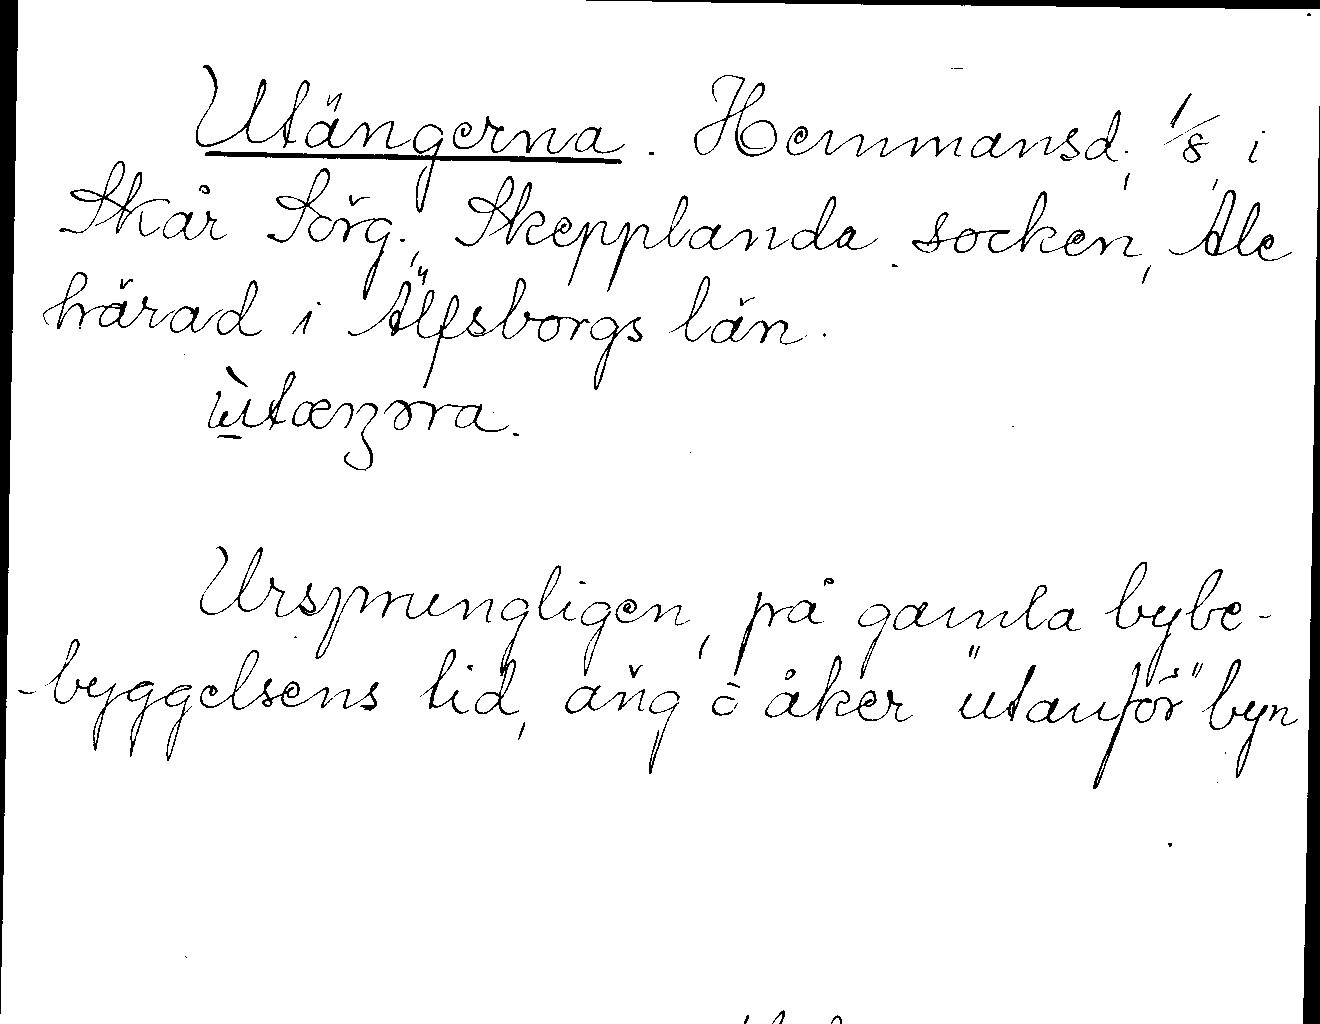 Utängerna. Hemmansd., 1/8, i
Skår Sörg., Skepplanda socken, Ale
härad i Älfsborgs län.
ùtæŋəra.
Ursprungligen, på gamla bybe-
-byggelsens tid, äng o åker "utanför" byn